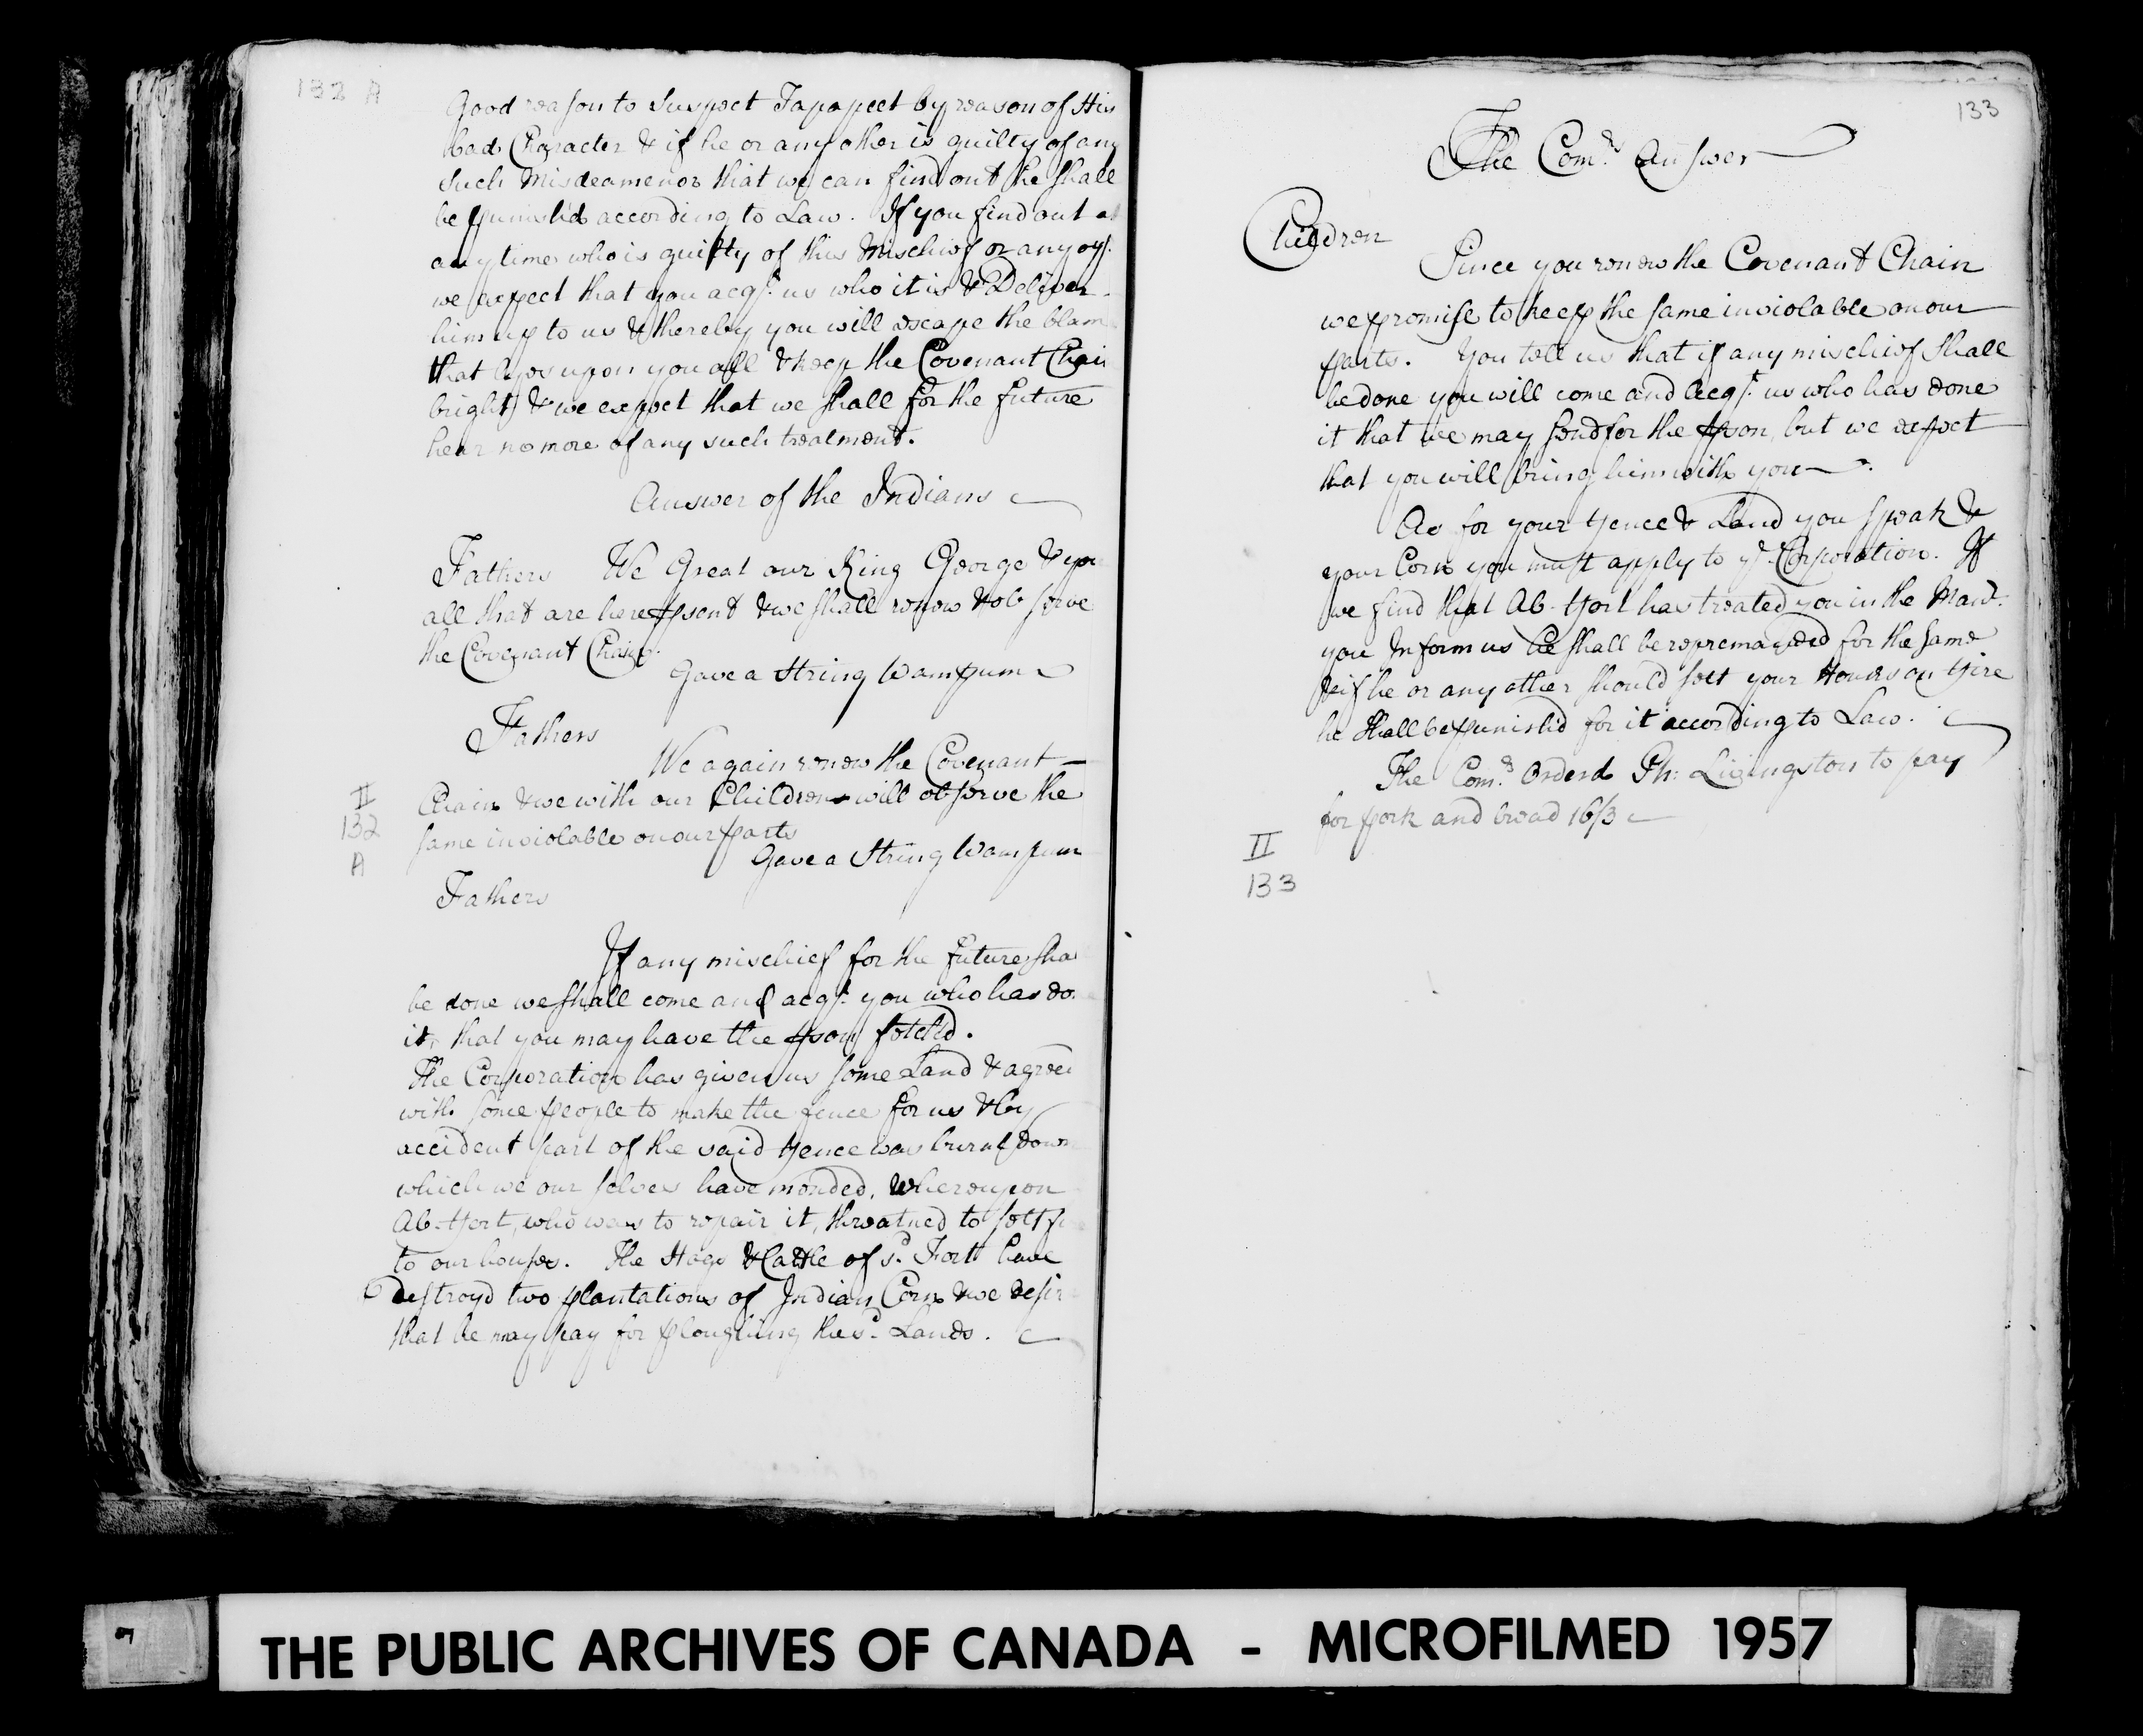 132 A
Good reason to Suspect Tapapect by reason of His
bad Character & if he or any other is guilty of any
such Misdeamenor that we can find out he shall
be punishd according to Law. If you find out at
any time who is guilty of this Mischief or any oyr.
we expect that you acqt. us who it is & Deliver
him up to us & thereby you will escape the blame
that lyes upon you all & keep the Covenant Chain
bright, & we expect that we shall for the future
hear no more of any such treatment.
Answer of the Indians
Fathers We Great our King George & you
all that are here psent & we shall renew & observe
the Covenant Chain.
Gave a String Wampum
Fathers
We again renew the Covenant
Chain & we with our Children will observe the
same inviolable on our parts
Gave a String Wampum
II
132
A
Fathers
If any mischief for the future shal
be done we shall come and acqt. you who has done
it, that you may have the pson fetchd.
The Corporation has given us some Land & agreed
with some people to make the fence for us & by
accident part of the said ffence was burnt down
which we our selves have mended, Whereupon
Ab. ffort, who was to repair it, threatned to sett fire
to our houses. The Hogs & Cattle of sd. Fortt have
Destroyd two plantations of Indian Corn & we desire
that he may pay for ploughing the sd. Lands.
133
The Comrs. Answer
Children
Since you renew the Covenant Chain
we promise to keep the same inviolable on our
parts. You tell us that if any mischief shall
be done you will come and acqt. us who has done
it that we may send for the pson, but we expect
that you will bring him with you.
As for your ffence & Land you speak &
your Corn you must apply to ye. Corporation. If
we find that Ab. ffort has treated you in the Manr.
you Inform us he shall be repremanded for the same
& if he or any other should sett your Houses on ffire
he shall be punishd for it according to Law.
The Comrs. Orderd Ph: Livingston to pay
for pork and bread 16/3
II
133
THE PUBLIC ARCHIVES OF CANADA - MICROFILMED 1957